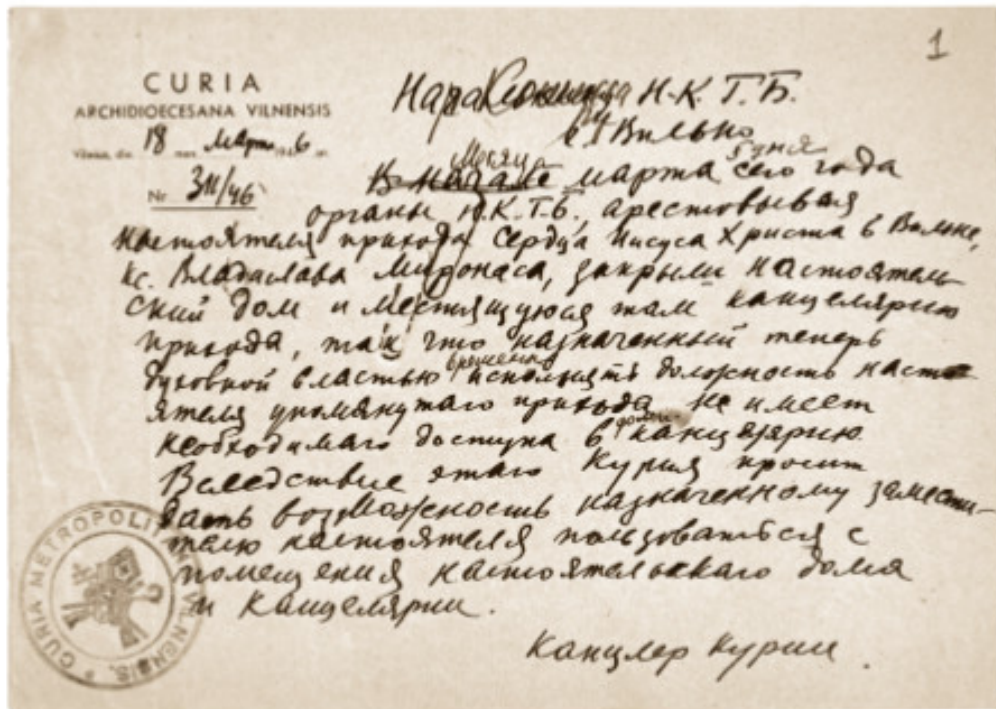 1
CURIA
ARCHIDIOECESANA VILNENSIS
18 марта 1946
Nr 311/46
Н.К.Г.Б.
в Вильно
5 дня
В начале марта сего года
органы Н.К.Г.Б., арестовывая
настоятеля прихода Сердца Иисуса Христа в Вильне,
кс. Владислава Миронаса, закрыли настоятель-
ский дом и местящуюся там канцелярию
прихода, так что назначенный теперь
временно
духовной властью исполнять должность насто-
ятеля упомянутаго прихода не имеет
необходимаго доступа в канцелярию.
Вследствие этаго Курия просит
дать возможность назначенному замести-
телю настоятеля пользоваться с
помещения настоятельскаго дома
и канцелярии.
Канцлер Курии
CURIA METROPOLITANA VILNENSIS